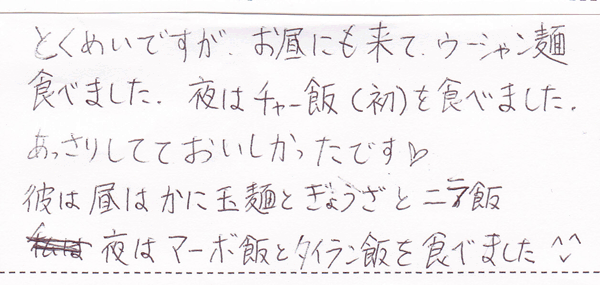 とくめいですが、お昼にも来て、ウーシャン麺
食べました。夜はチャー飯(初)を食べました。
あっさりしてておいしかったです♡
彼は昼はかに玉麺とぎょうざとニラ飯
夜はマーボ飯とタイラン飯を食べました^^